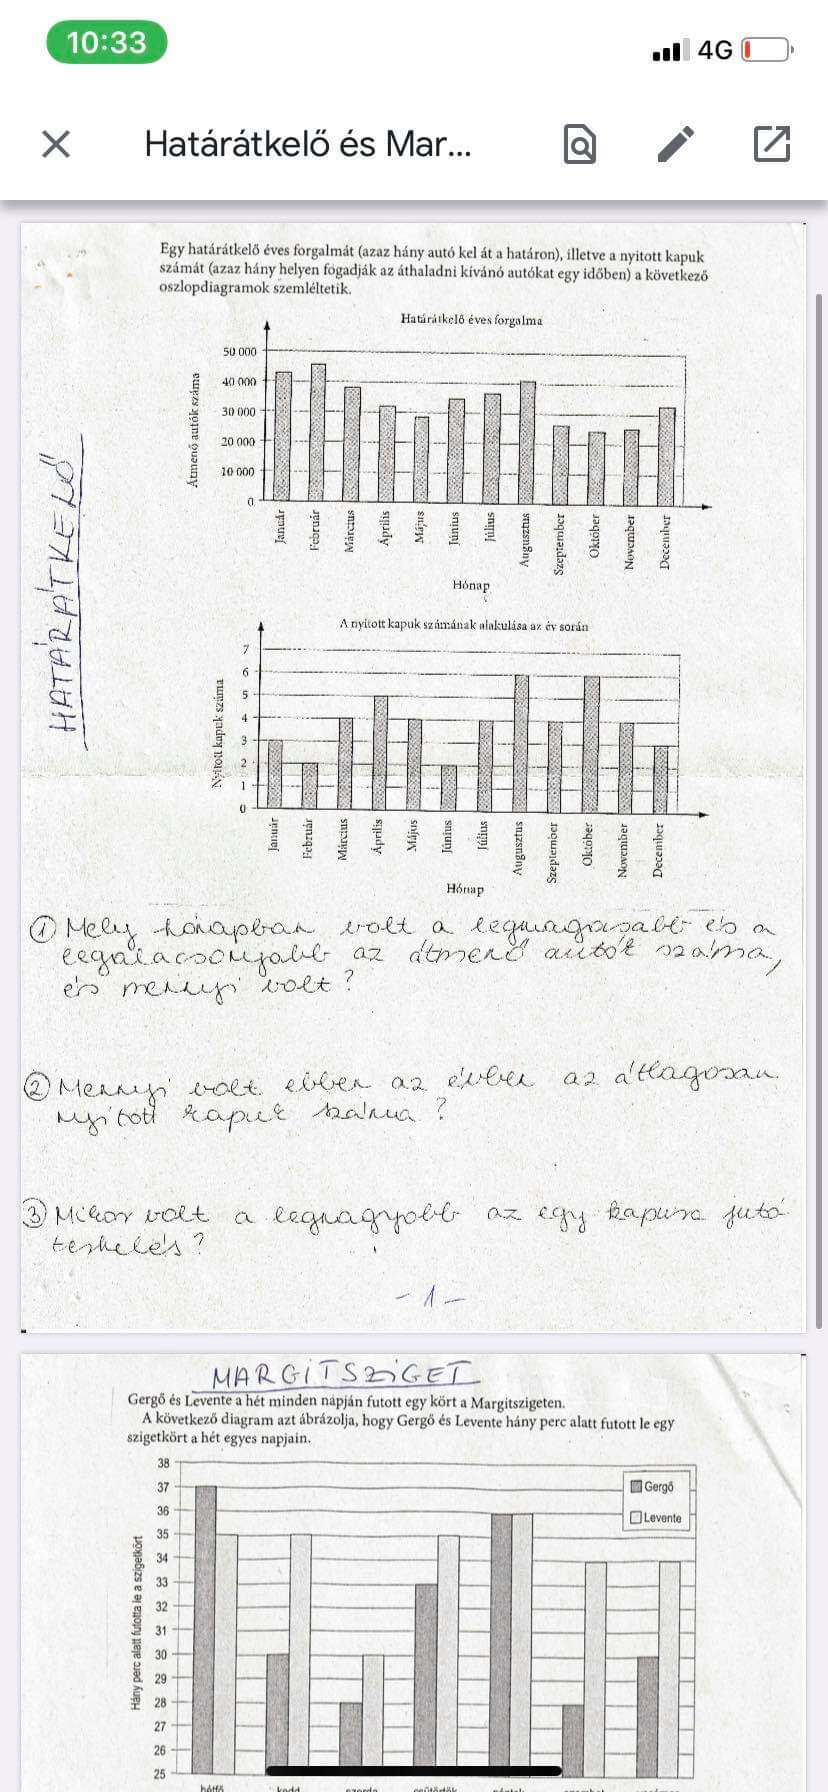 10:33
4G
Határátkelő és Mar...
Egy határátkelő éves forgalmát (azaz hány autó kel át a határon), illetve a nyitott kapuk
számát (azaz hány helyen fogadják az áthaladni kívánó autókat egy időben) a következő
oszlopdiagramok szemléltetik.
HATÁRÁTKELŐ
Határátkelő éves forgalma
Átmenő autók száma
50 000
40 000
30 000
20 000
10 000
0
Január
Február
Március
Április
Május
Június
Július
Augusztus
Szeptember
Október
November
December
Hónap
A nyitott kapuk számának alakulása az év során
Nyitott kapuk száma
7
6
5
4
3
2
1
0
Január
Február
Március
Április
Május
Június
Július
Augusztus
Szeptember
Október
November
December
Hónap
① Mely hónapban volt a legmagasabb és a
legalacsonyabb az átmenő autók száma,
és mennyi volt?
② Mennyi volt ebben az évben az átlagosan
nyitott kapuk száma?
③ Mikor volt a legnagyobb az egy kapura jutó
terhelés?
- 1 -
MARGITSZIGET
Gergő és Levente a hét minden napján futott egy kört a Margitszigeten.
A következő diagram azt ábrázolja, hogy Gergő és Levente hány perc alatt futott le egy
szigetkört a hét egyes napjain.
Hány perc alatt futotta le a szigetkört
38
37
36
35
34
33
32
31
30
29
28
27
26
25
Gergő
Levente
hétfő
kedd
szerda
csütörtök